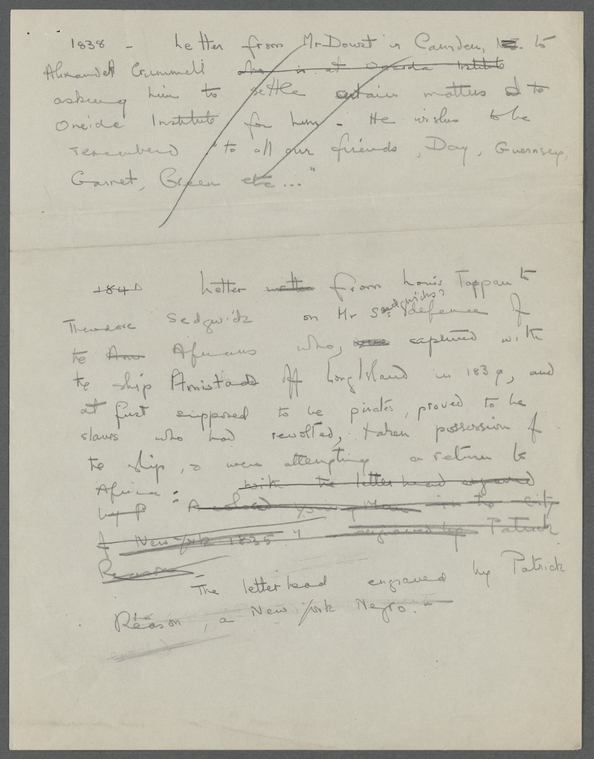 1838 - Letter from Mr Dowst in Camden, to
Alexander Crummell who is at Oneida Institute
asking him to settle certain matters at the
Oneida Institute for him - He wishes to be
remembered "to all our friends, Day, Guernsey,
Garnet, Green etc..."
1840 Letter from Louis Tappan to
Theodore Sedgwick on Mr S's sedgwicks? defence of
the Africans who, captured with
the ship Amistad off Long Island in 1839, and
at first supposed to be pirates, proved to be
slaves who had revolted, taken possession of
the ship, & were attempting a return to
Africa. with the letter head engraved
by P "A colored young Man in the City
of New York 1835" engraved by Patrick
Reason
The letterhead engraved by Patrick
Reason, a New York Negro. -